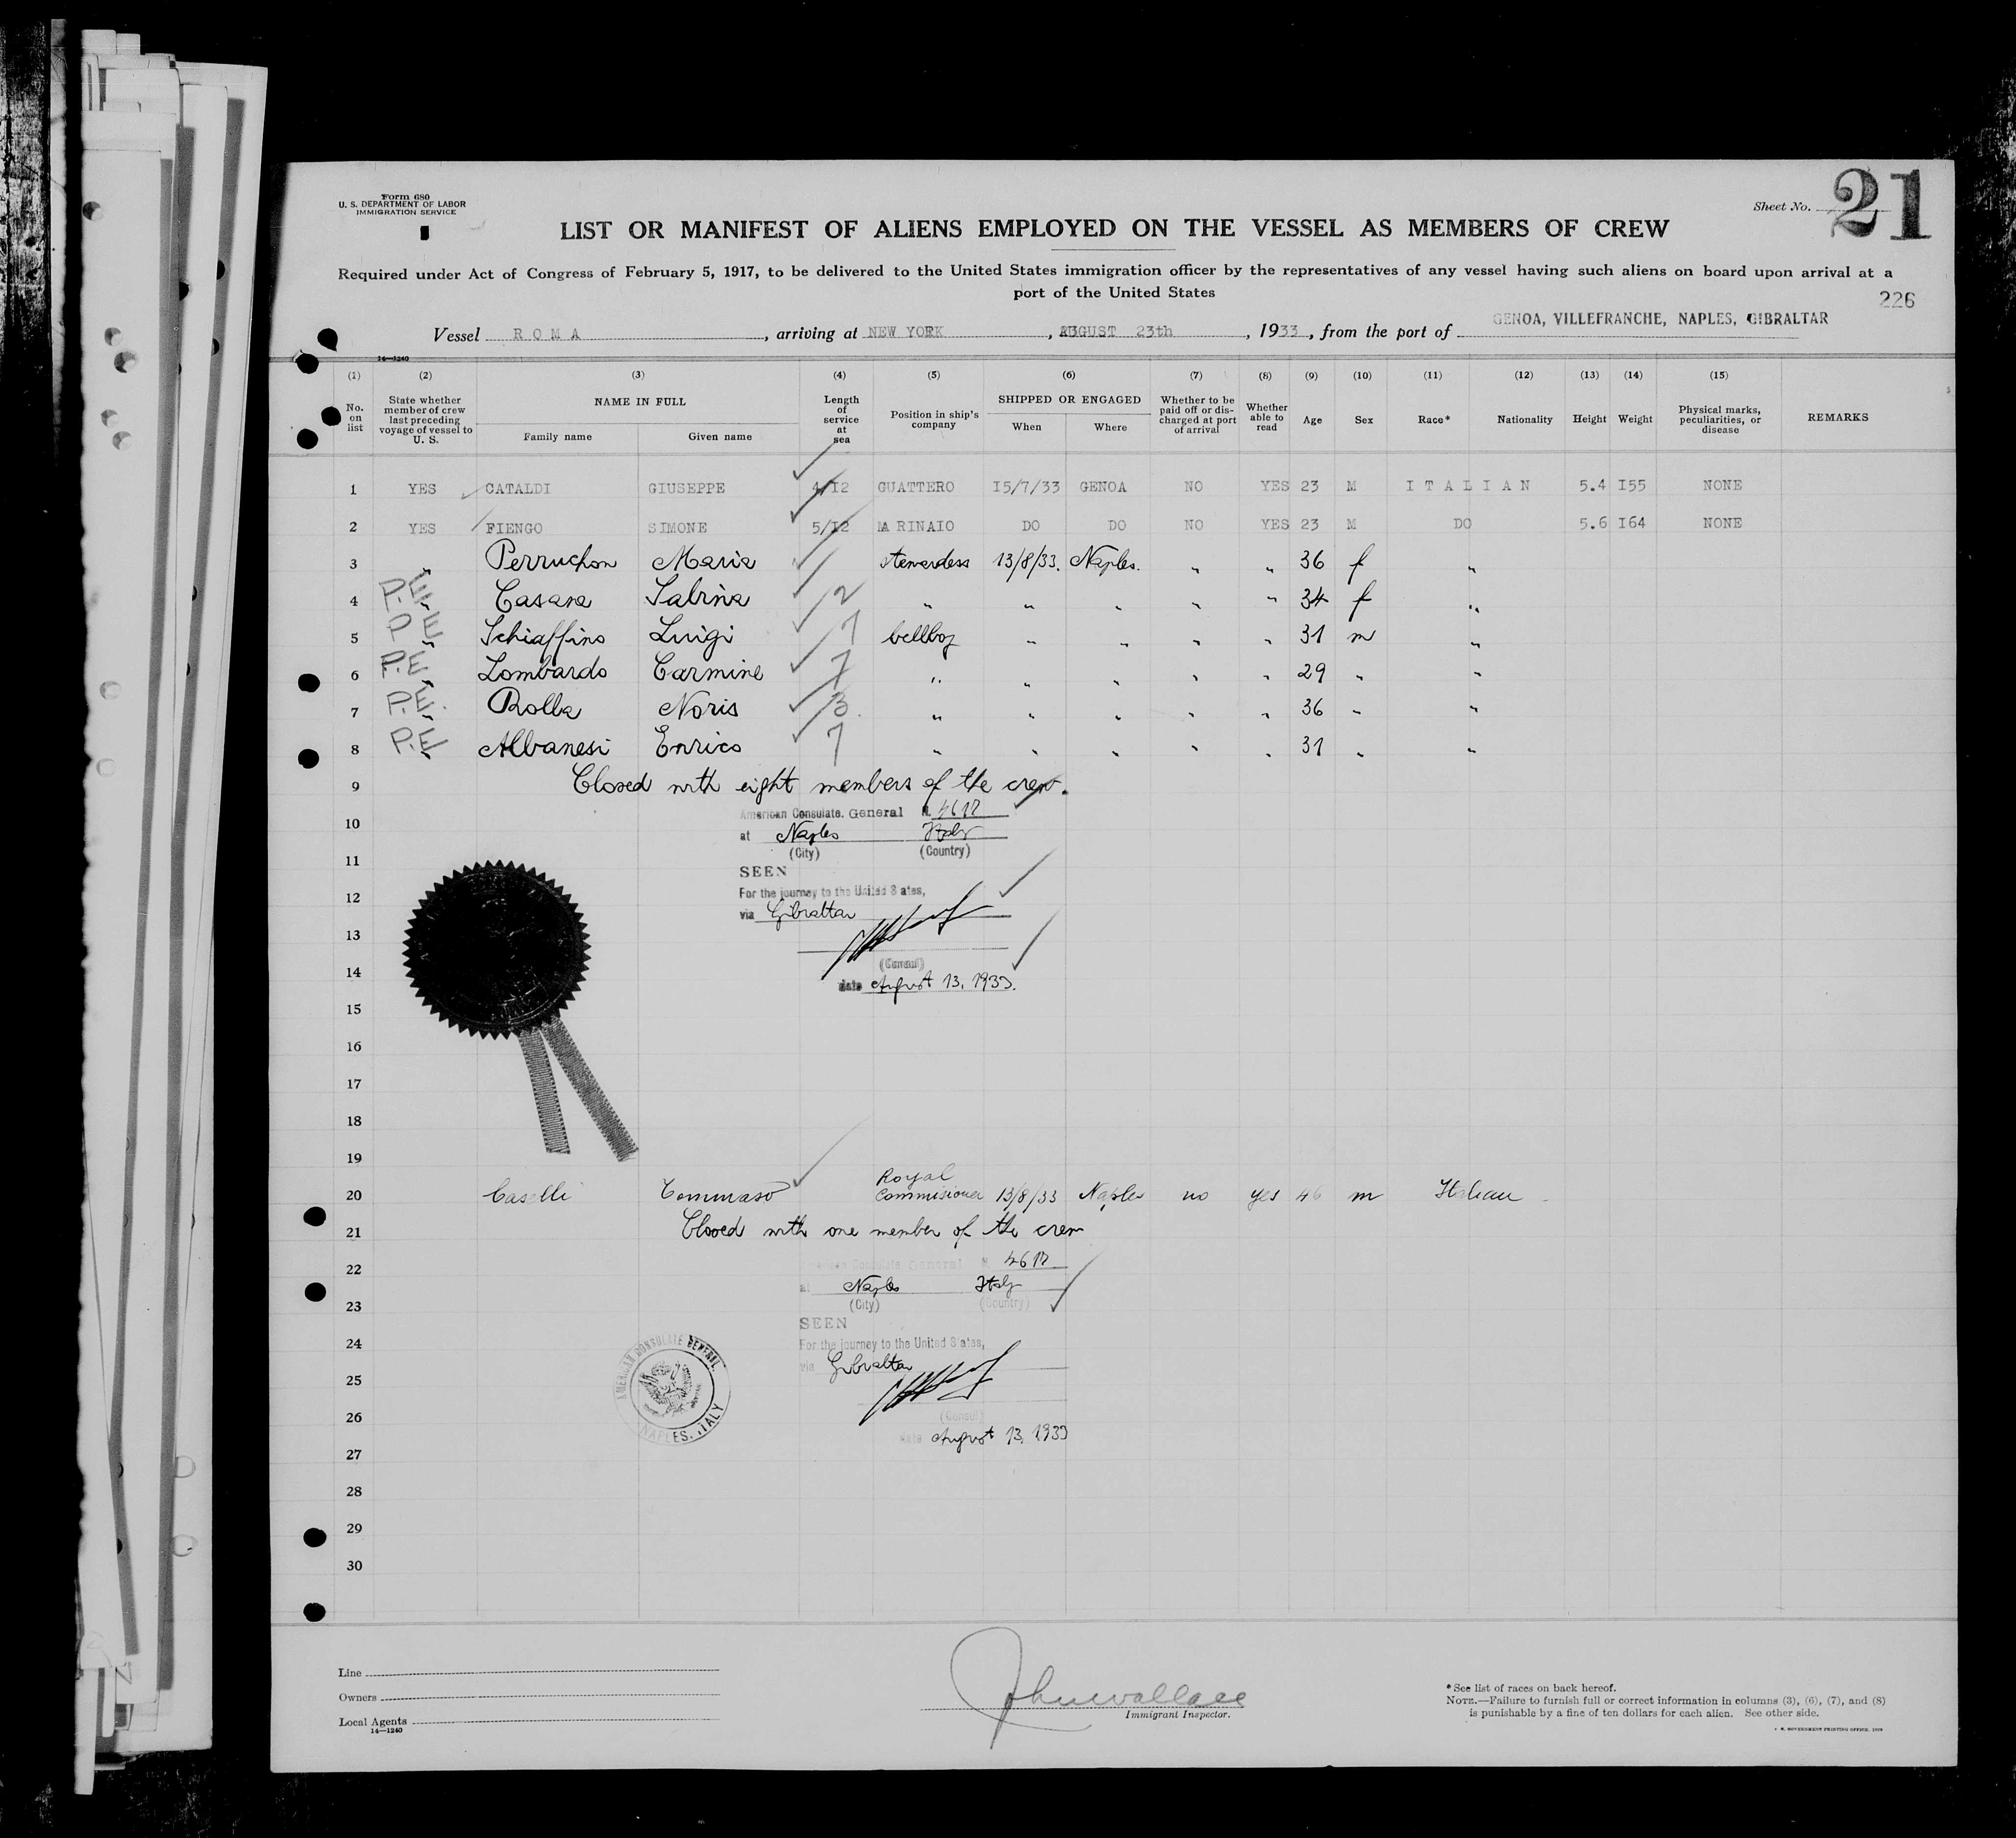 Form 680
U. S. DEPARTMENT OF LABOR
IMMIGRATION SERVICE
Sheet No. 21
LIST OR MANIFEST OF ALIENS EMPLOYED ON THE VESSEL AS MEMBERS OF CREW
Required under Act of Congress of February 5, 1917, to be delivered to the United States immigration officer by the representatives of any vessel having such aliens on board upon arrival at a
port of the United States
226
Vessel ROMA, arriving at NEW YORK, AUGUST 23th, 1933, from the port of GENOA, VILLEFRANCHE, NAPLES, GIBRALTAR
14—1240
(1) (2) (3) (4) (5) (6) (7) (8) (9) (10) (11) (12) (13) (14) (15)
No. on list State whether member of crew last preceding voyage of vessel to U. S. NAME IN FULL Family name Given name Length of service at sea Position in ship's company SHIPPED OR ENGAGED When Where Whether to be paid off or discharged at port of arrival Whether able to read Age Sex Race* Nationality Height Weight Physical marks, peculiarities, or disease REMARKS
1 YES CATALDI GIUSEPPE 4/I2 GUATTERO I5/7/33 GENOA NO YES 23 M ITALIAN 5.4 I55 NONE
2 YES FIENGO SIMONE 5/I2 MARINAIO DO DO NO YES 23 M DO 5.6 I64 NONE
3 " Perruchon Maria stewardess 13/8/33. Naples. " " 36 f "
4 P.E. " Casara Sabrina 2 " " " " " 34 f "
5 P.E " Schiaffino Luigi 7 bellboy " " " " 31 m "
6 P.E. " Lombardo Carmine 7 " " " " " 29 " "
7 P.E. " Rolla Noris 3 " " " " " 36 " "
8 P.E " Albanesi Enrico 7 " " " " " 31 " "
9 Closed with eight members of the crew.
American Consulate. General N.
10 at Naples Italy
(City) (Country)
11
SEEN
For the journey to the United States,
12
via Gibraltar
13
(Consul)
14
date August 13, 1933.
15
16
17
18
19
20 Caselli Tommaso Royal Commisioner 13/8/33 Naples no yes 46 m Italian
21 Closed with one member of the crew
22 American Consulate General N.
at Naples Italy
23 (City) (Country)
SEEN
24 For the journey to the United States,
via Gibraltar
25
26 (Consul)
date August 13, 1933
AMERICAN CONSULATE GENERAL
NAPLES, ITALY
27
28
29
30
Line
Owners
Local Agents
14—1240
John Wallace
Immigrant Inspector.
* See list of races on back hereof.
NOTE.—Failure to furnish full or correct information in columns (3), (6), (7), and (8)
is punishable by a fine of ten dollars for each alien. See other side.